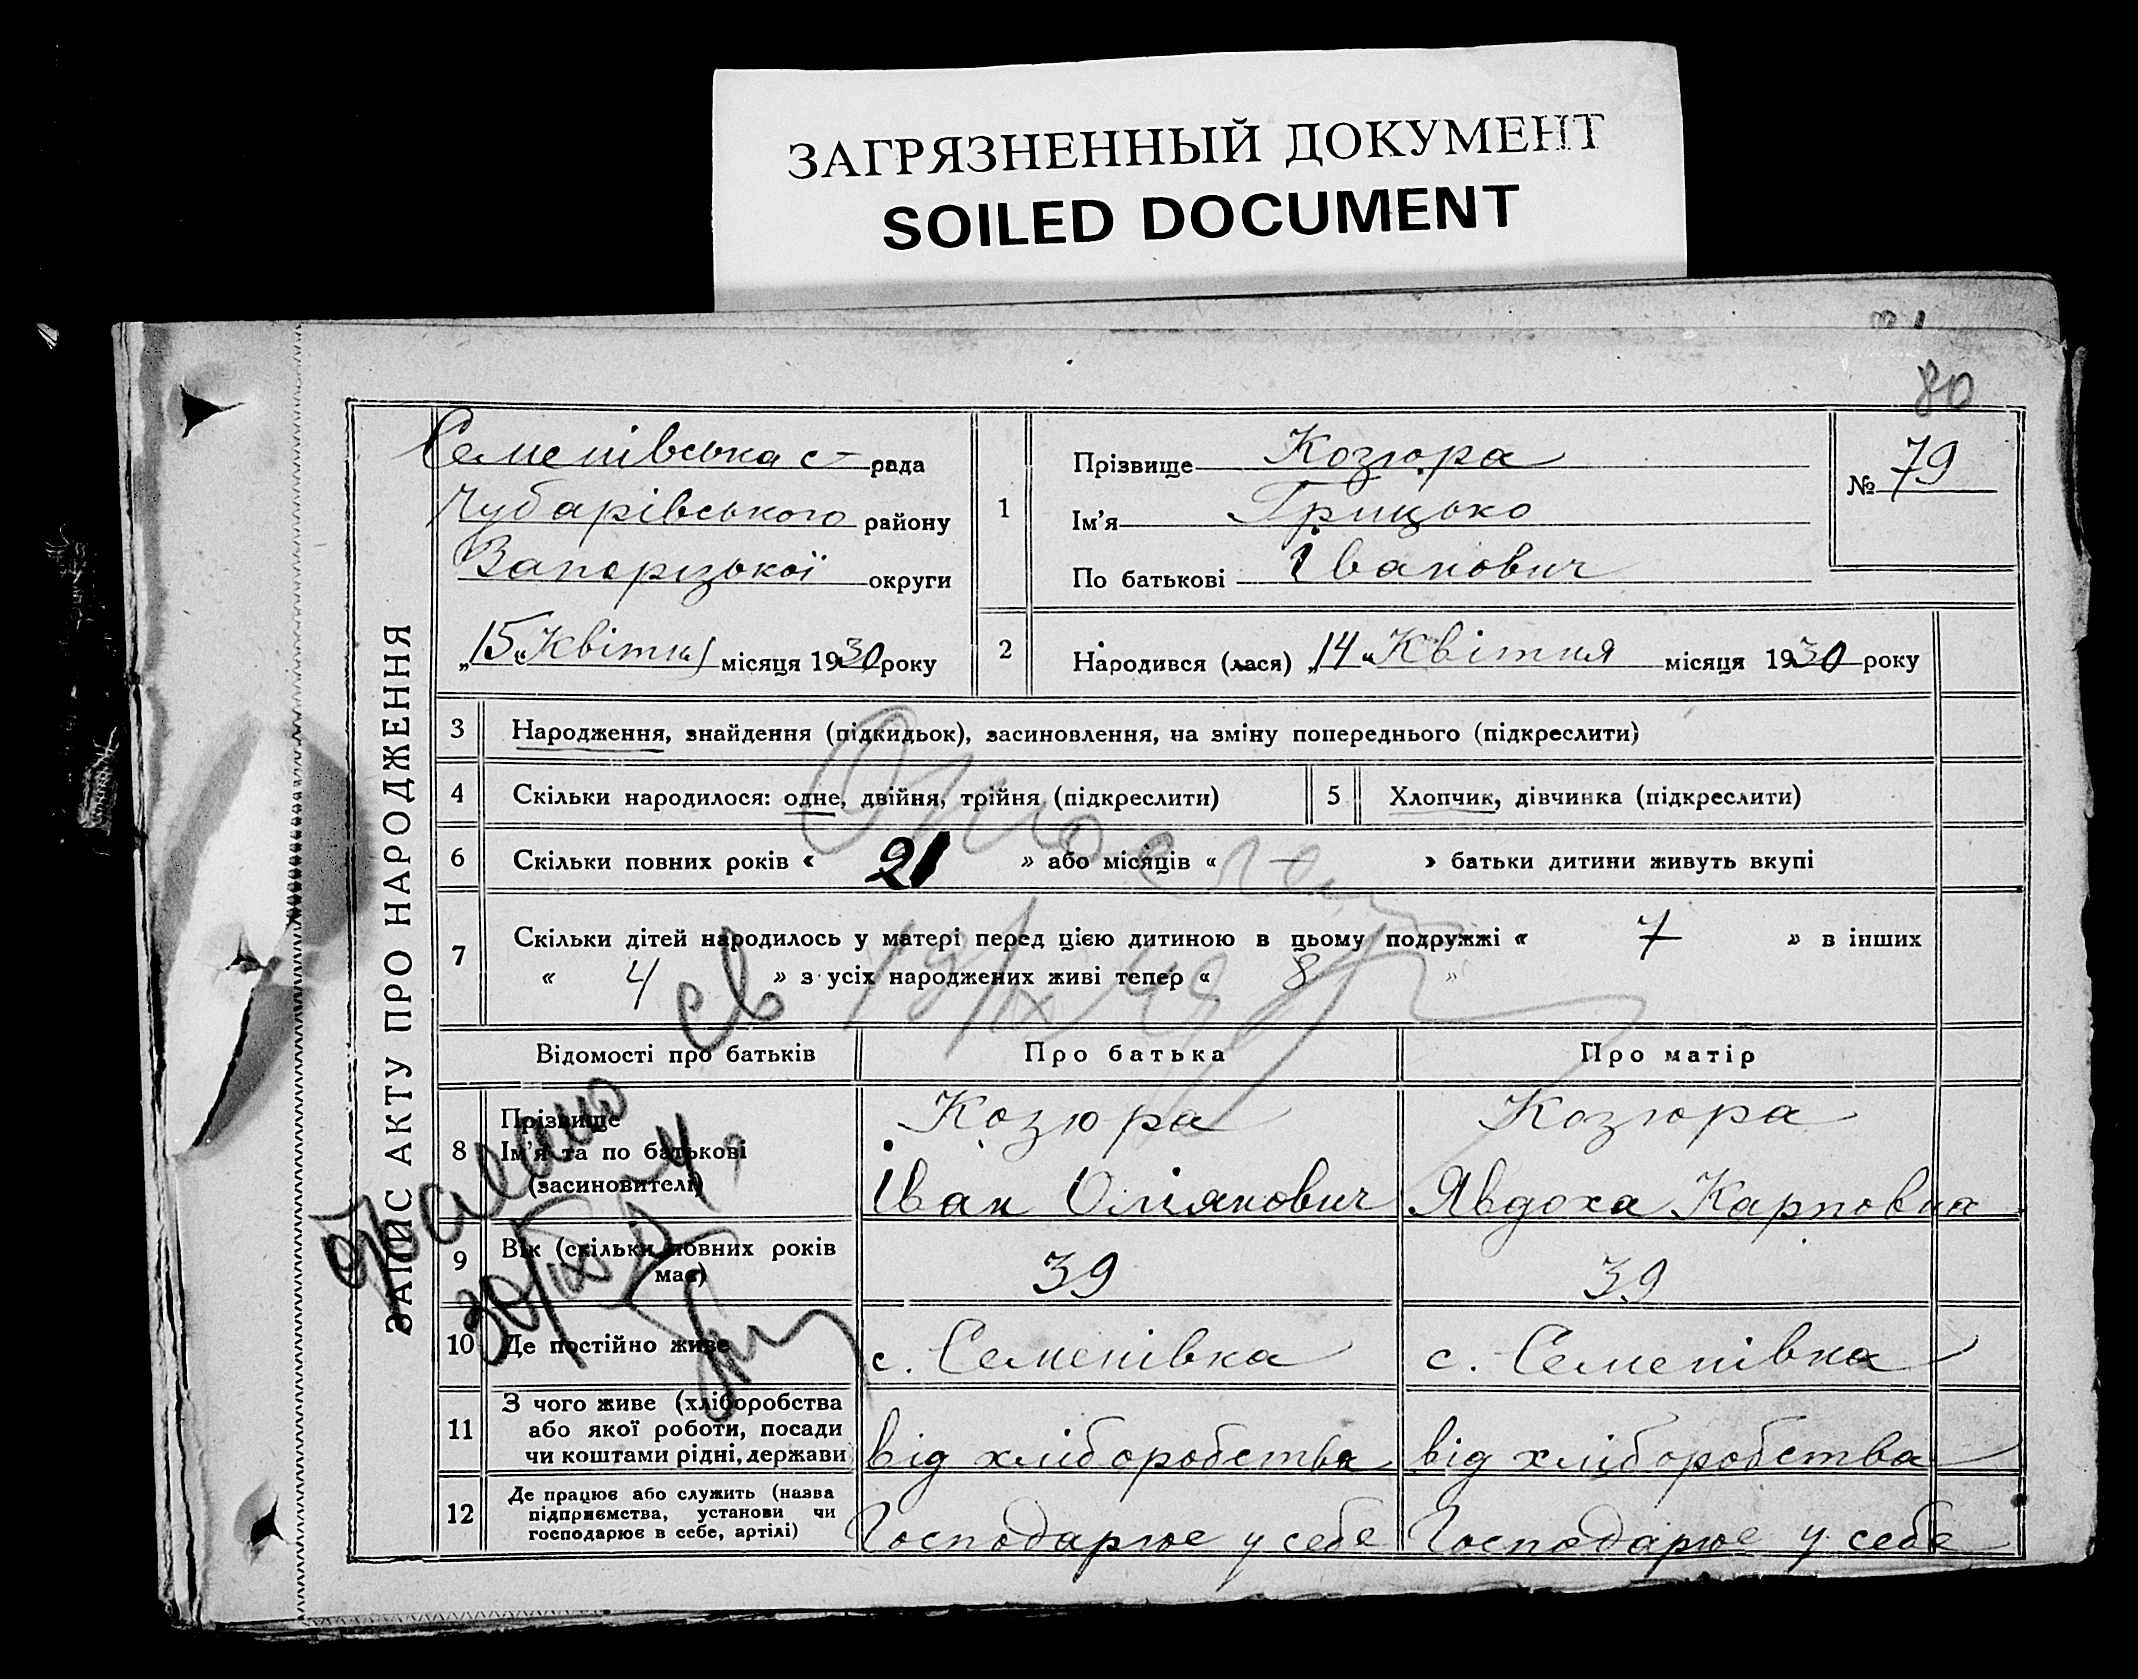 ЗАГРЯЗНЕННЫЙ ДОКУМЕНТ
SOILED DOCUMENT
80
ЗАПИС АКТУ ПРО НАРОДЖЕННЯ
Семенівська с- рада
Чубарівського району
Запорізької округи
„15“ Квітня місяця 1930 року
1
Прізвище Козюра
Ім'я Грицько
По батькові Іванович
№ 79
2
Народився (лася) „14“ Квітня місяця 1930 року
3 Народження, знайдення (підкидьок), засиновлення, на зміну попереднього (підкреслити)
4 Скільки народилося: одне, двійня, трійня (підкреслити) 5 Хлопчик, дівчинка (підкреслити)
6 Скільки повних років « 21 » або місяців « — » батьки дитини живуть вкупі
7 Скільки дітей народилось у матері перед цією дитиною в цьому подружжі « 7 » в інших
« 4 » з усіх народжених живі тепер « 8 »
св 19/IX 49
Відомості про батьків Про батька Про матір
8 Прізвище Козюра Козюра
Ім'я та по батькові Іван Явдоха Карповна
(засиновителі)
9 Вік (скільки повних років 39 39
має)
10 Де постійно живе с. Семенівка с. Семенівка
11 З чого живе (хліборобства
або якої роботи, посади
чи коштами рідні, держави від хліборобства від хліборобства
12 Де працює або служить (назва
підприємства, установи чи
господарює в себе, артілі) Господарює у себе Господарює у себе